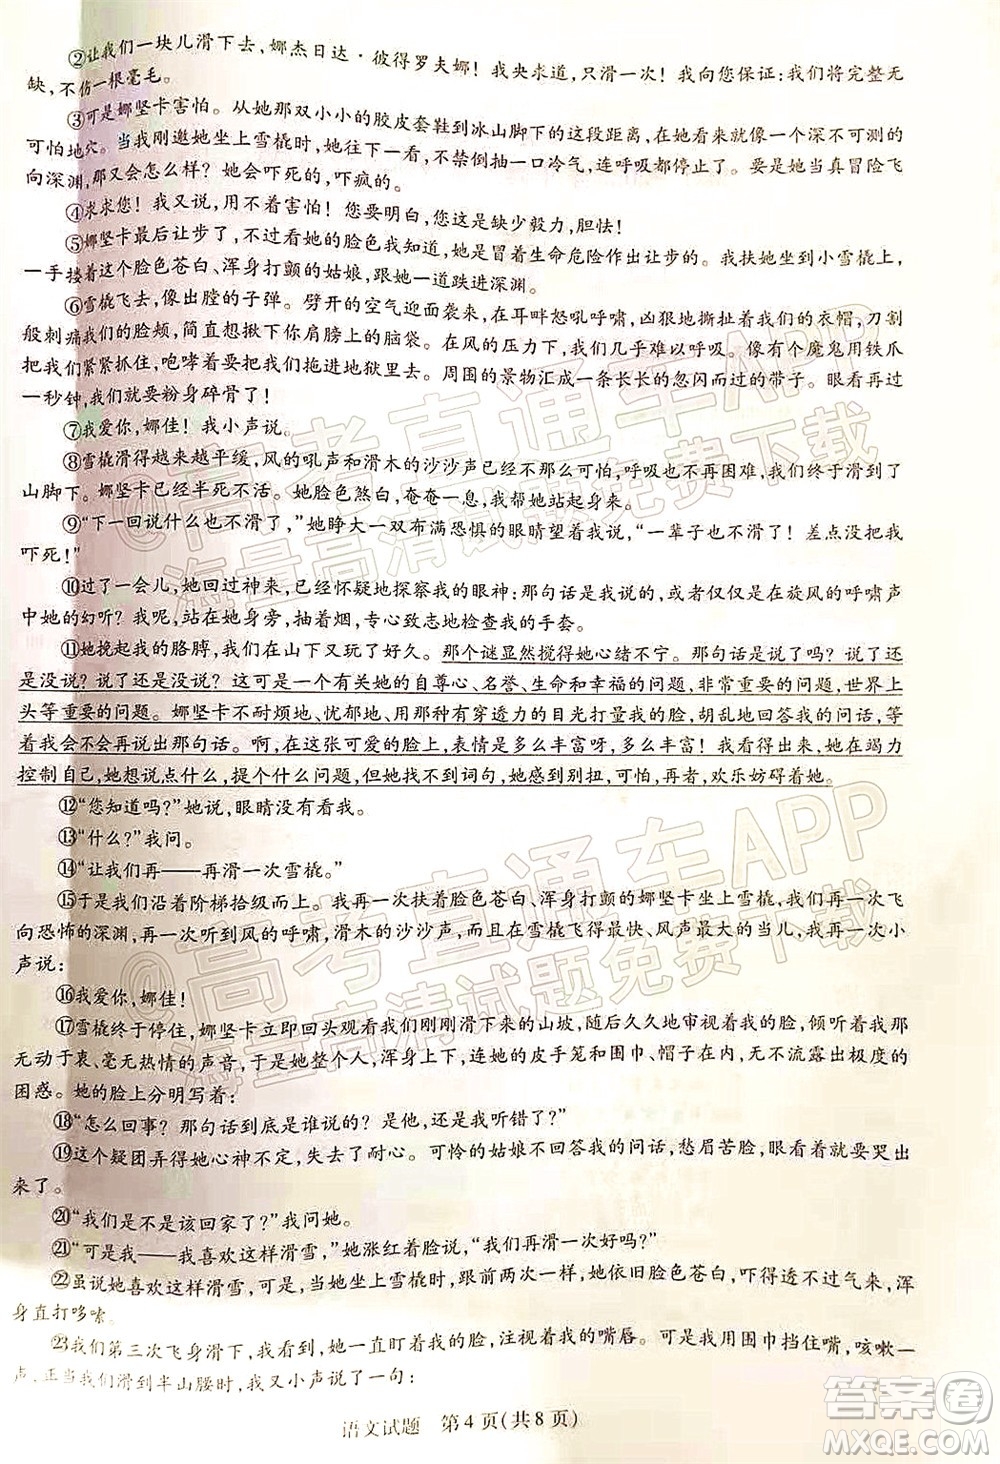 ②让我们一块儿滑下去，娜杰日达·彼得罗夫娜！我央求道，只滑一次！我向您保证：我们将完整无
缺，不伤一根毫毛。
③可是娜坚卡害怕。从她那双小小的胶皮套鞋到冰山脚下的这段距离，在她看来就像一个深不可测的
可怕地穴。当我刚邀她坐上雪橇，她往下一看，不禁倒抽一口冷气，连呼吸都停止了。要是她当真冒险飞
向深渊，那又会怎么样？她会吓死的，吓疯的。
④求求您！我又说，用不着害怕！您要明白，您这是缺少毅力，胆怯！
⑤娜坚卡最后让步了，不过看她的脸色我知道，她是冒着生命危险作出让步的。我扶她坐到小雪橇上，
一手搂着这个脸色苍白、浑身打颤的姑娘，跟她一道跌进深渊。
⑥雪橇飞去，像出膛的子弹。劈开的空气迎面袭来，在耳畔怒吼呼啸，凶狠地撕扯着我们的衣帽，刀割
般刺痛我们的脸颊，简直想揪下你肩膀上的脑袋。在风的压力下，我们几乎难以呼吸。像有个魔鬼用铁爪
把我们紧紧抓住，咆哮着要把我们拖进地狱里去。周围的景物汇成一条长长的忽闪而过的带子。眼看再过
一秒钟，我们就要粉身碎骨了！
⑦我爱你，娜佳！我小声说。
⑧雪橇滑得越来越平缓，风的吼声和滑木的沙沙声已经不那么可怕，呼吸也不再困难，我们终于滑到了
山脚下。娜坚卡已经半死不活。她脸色煞白，奄奄一息，我帮她站起身来。
⑨“下一回说什么也不滑了，”她睁大一双布满恐惧的眼睛望着我说，“一辈子不滑了！差点没把我
吓死！”
⑩过了一会儿，她回过神来，已经怀疑地探察我的眼神：那句话是我说的，或者仅仅是在旋风的呼啸声
中她的幻听？我呢，站在她身旁，抽着烟，专心致志地检查我的手套。
⑪她挽起我的胳膊，我们在山下又玩了好久。那个谜显然搅得她心绪不宁。那句话是说了吗？说了还
是没说？说了还是没说？这可是一个有关她的自尊心、名誉、生命和幸福的问题，非常重要的问题，世界
上头等重要的问题。娜坚卡不耐烦地、忧郁地、用那种有穿透力的目光打量我的脸，胡乱地回答我的问话，等
着我会不会再说出那句话。啊，在这张可爱的脸上，表情是多么丰富呀，多么丰富！我看得出来，她在竭力
控制自己，她想说点什么，提个什么问题，但她找不到词句，她感到别扭，可怕，再者，欢乐妨碍着她。
⑫“您知道吗？”她说，眼睛没有看我。
⑬“什么？”我问。
⑭“让我们再——再滑一次雪橇。”
⑮于是我们沿着阶梯拾级而上。我再一次扶着脸色苍白、浑身打颤的娜坚卡坐上雪橇，我们再一次飞
向恐怖的深渊，再一次听到风的呼啸，滑木的沙沙声，而且在雪橇飞得最快、风声最大的当儿，我再一次小
声说：
⑯我爱你，娜佳！
⑰雪橇终于停住，娜坚卡立即回头观看我们刚刚滑下来的山坡，随后久久地审视着我的脸，倾听着我
无动于衷、毫无热情的声音，于是她整个人，浑身上下，连她的皮手笼和围巾、帽子在内，无不流露出极度的
困惑。她的脸上分明写着：
⑱“怎么回事？那句话到底是谁说的？是他，还是我听错了？”
⑲这个疑团弄得她心神不定，失去了耐心。可怜的姑娘不回答我的问话，愁眉苦脸，眼看着就要哭出
来了。
⑳“我们是不是该回家了？”我问她。
㉑“可是我——我喜欢这样滑雪，”她涨红着脸说，“我们再滑一次好吗？”
㉒虽说她喜欢这样滑雪，可是，当她坐上雪橇时，跟前两次一样，她依旧脸色苍白，吓得透不过气来，浑
身直打哆嗦。
㉓我们第三次飞身滑下，我看到，她一直盯着我的脸，注视着我的嘴唇。可是我用围巾挡住嘴，咳嗽一
声，正当我们滑到半山腰时，我又小声说了一句：
语文试题 第4页（共8页）
@高考直通车APP
海量高清试题免费下载
@高考直通车APP
海量高清试题免费下载
答案圈
MXQE.COM